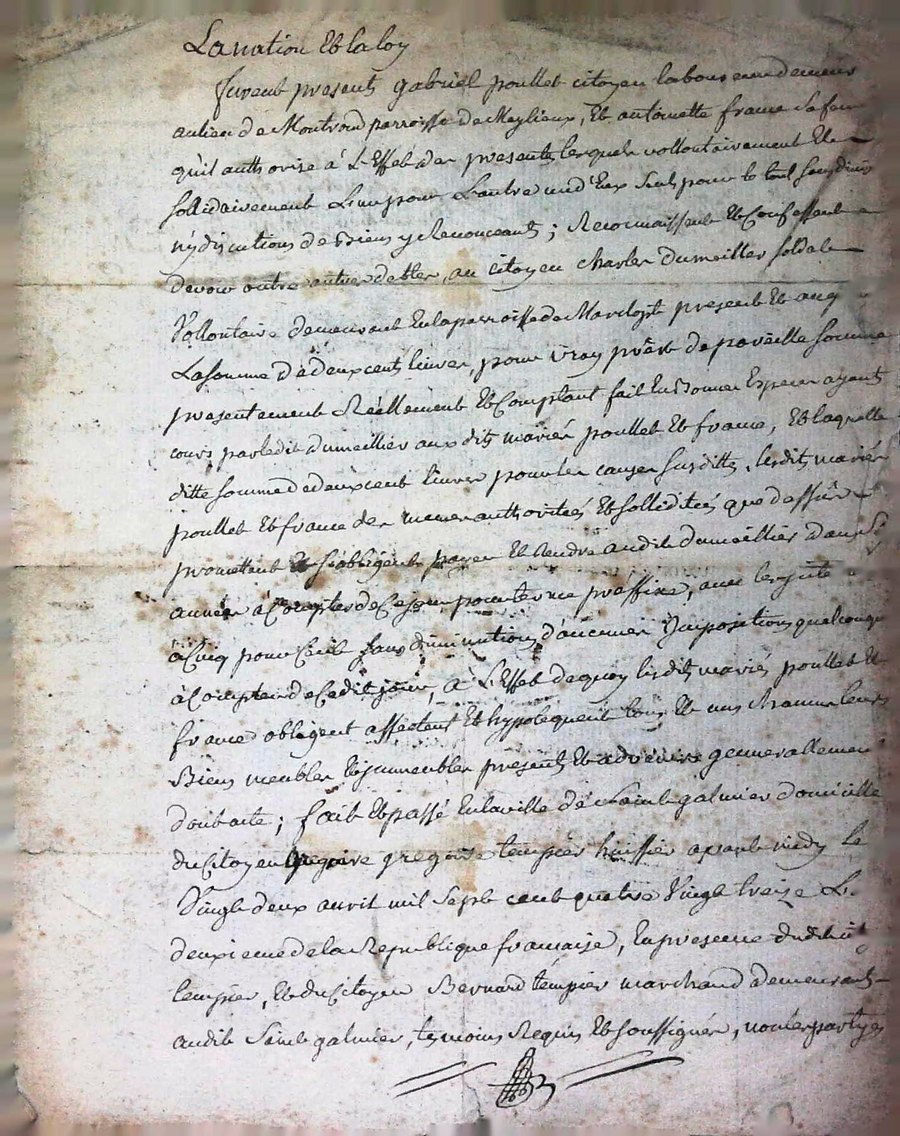 La nation Et la loy
furent presents gabriel poullet citoyen laboureur demeur
au lieu de Montrond parroisse de Meylieux, Et antoinette france sa fem
qu'il authorise à L'Effet des presentes lesquels vollontairement Et
sollidairement L'un pour L'autre un d'Eux seul pour le tout sans divis
ny discutions de Biens y Renonceants; Reconnaissent Et Confessent
devoir outre autres debtes, au citoyen charles Dumeillier soldat
Vollontaire demeurant En la parroisse de Marclopt present Et acq
La somme de deux cents livres, pour vray prêt de pareille somme
presentement Réellement Et Comptant fait En Bonnes Especes ayants
cours par ledit dumeillier aux dits mariés poullet Et france, Et laquelle
ditte somme de deux cent livres pour les causes susdittes, lesdits mariés
poullet Et france des memes authorités Et sollidités que dessus
promettent Et s'obligent payer Et Rendre audit dumeillier dans
années à Compter de Ce jour pour terme praffixe, avec les jnts
à Cinq pour Cent sans diminution d'aucunes Jmpositions quelconque
à Compter de Cedit jour, à L'Effet de quoy lesdits mariés poullet Et
france obligent affectent Et hypotequent tous Et uns Chacuns leurs
Biens meubles Et jmmeubles présents Et advenirs generallement
dont acte; fait Et passé En la ville de Saint galmier domicille
du Citoyen gregoire tempier huissier apres midy le
Vingt deux avril mil Sept cent quatre Vingt treize L.
deuxieme de la Republique francaise, En presence dudit
tempier, Et du Citoyen Bernard tempier marchand demeurant
audit Saint galmier, temoins Requis Et soussignés, non les partyes